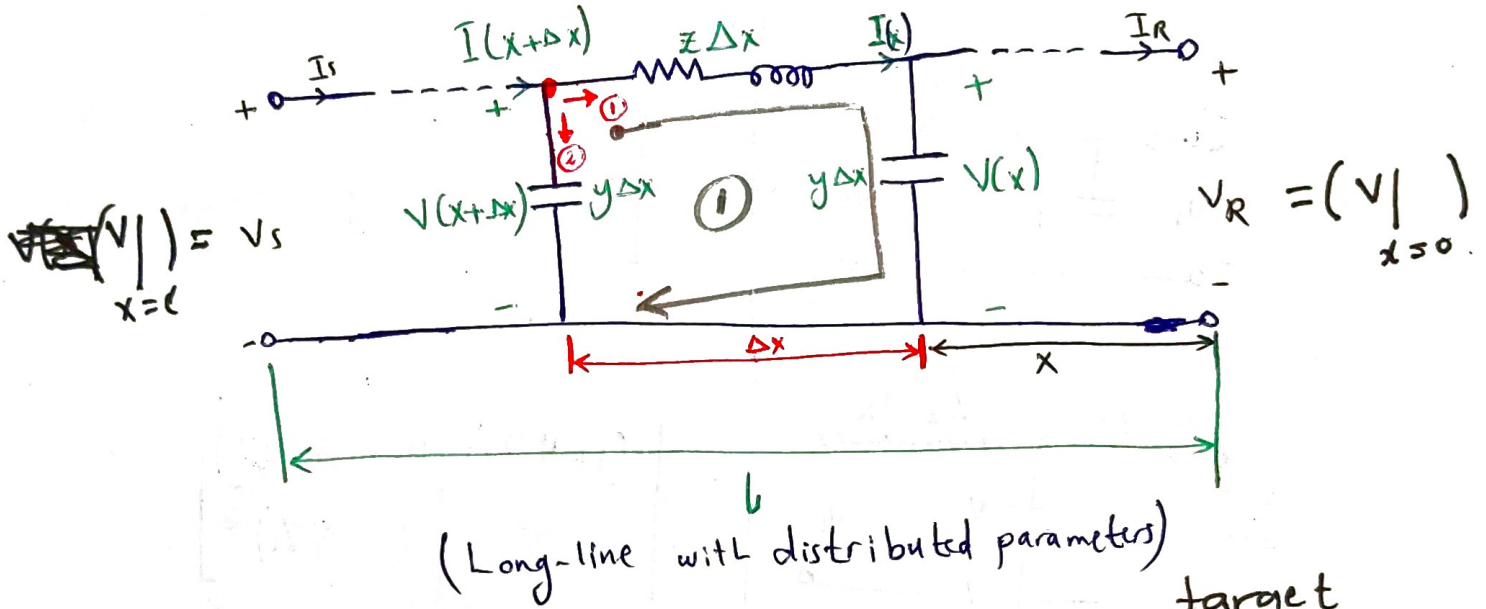 I(x+Δx) zΔx I(x) IR
Is
+ + ① + +
②
V(x+Δx) yΔx ① yΔx V(x)
(V| ) = Vs
x=l
VR = (V| )
x=0.
- - - -
Δx x
l
(Long-line with distributed parameters)
target